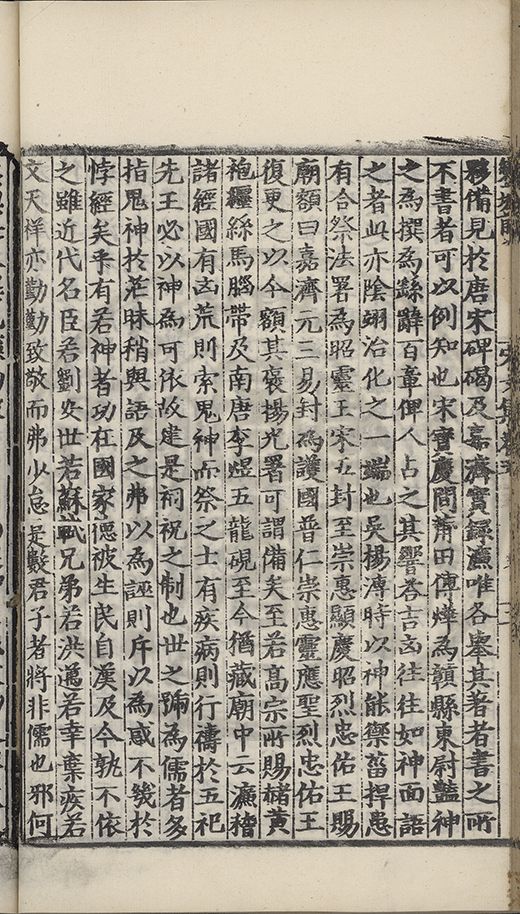 夥備見於唐宋碑碣及嘉濟實録濂唯各舉其著者書之所
不書者可以例知也宋寶慶間莆田傅燁為贛縣東尉豔神
之為撰為繇辭百章俾人占之其響荅吉凶往往如神面語
之者此亦陰翊治化之一端也吳楊溥時以神能禦菑捍患
有合祭法署為昭靈王宋五封至崇惠顯慶昭烈忠佑王賜
廟額曰嘉濟元三易封為護國普仁崇惠靈應聖烈忠佑王
復更之以今額其褒揚光署可謂備矣至若高宗所賜赭黃
袍纒絲馬腦帶及南唐李煜五龍硯至今猶藏廟中云濂稽
諸經國有凶荒則索鬼神而祭之士有疾病則行禱於五祀
先王必以神為可依故建是祠祝之制也世之號為儒者多
指鬼神於茫昧稍與語及之弗以為誣則斥以為惑不幾於
悖經矣乎有若神者功在國家德被生民自漢及今孰不依
之雖近代名臣若劉安世若蘇軾兄弟若洪邁若辛棄疾若
文天祥亦勤勤致敬而弗少怠是數君子者將非儒也邪何